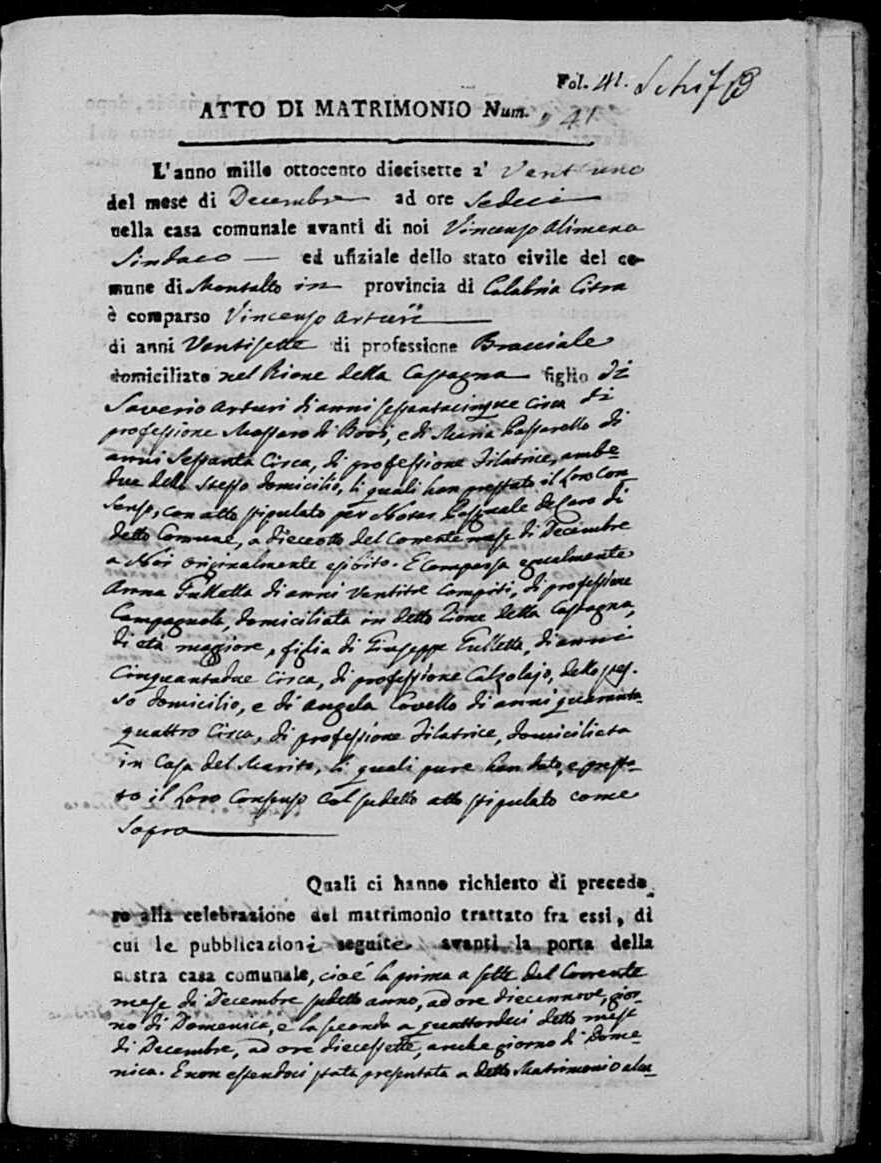 Fol. 41.
ATTO DI MATRIMONIO Num. 41
L'anno mille ottocento diecisette a' Vent'uno
del mese di Decembre ad ore Sedeci
nella casa comunale avanti di noi Vincenzo Alimena
Sindaco ed ufiziale dello stato civile del co-
mune di Montalto in provincia di Calabria Citra
è comparso Vincenzo Arturi
di anni Ventisette di professione Bracciale
domiciliato nel Rione della Castagna figlio di
Saverio Arturi di anni sessantacinque circa di
professione Massaro di Bovi, e di Maria Passarello di
anni Sessanta Circa, di professione Filatrice, ambe-
due dello stesso domicilio, li quali han prestato il Loro Con
senso, con atto stipulato per Notar Pasquale de Caro di
detto Comune, a dieceotto del Corrente mese di Decembre
a Noi originalmente esibito. E Comparsa egualmente
Anna Fulletta di anni Ventitre Compiti, di professione
Campagnola, domiciliata in detto Rione della Castagna,
di età maggiore, figlia di Giuseppe Fulletta, di anni
Cinquantadue Circa, di professione Calzolajo, dello stes-
so domicilio, e di Angela Covello di anni quaranta-
quattro Circa, di professione Filatrice, domiciliata
in Casa del Marito, li quali pure han dato, e presta-
to il Loro Consenso Col sudetto atto stipulato come
Sopra
Quali ci hanno richiesto di precede
re alla celebrazione del matrimonio trattato fra essi, di
cui le pubblicazioni seguite avanti la porta della
nostra casa comunale, cioé la prima a sette del Corrente
mese di Decembre sudetto anno, ad ore diecennove, gior-
no di Domenica, e la seconda a quattordeci detto mese
di Decembre, ad ore diecessette, anche giorno di Dome-
nica. E non essendoci stata presentata a detto Matrimonio alcu-